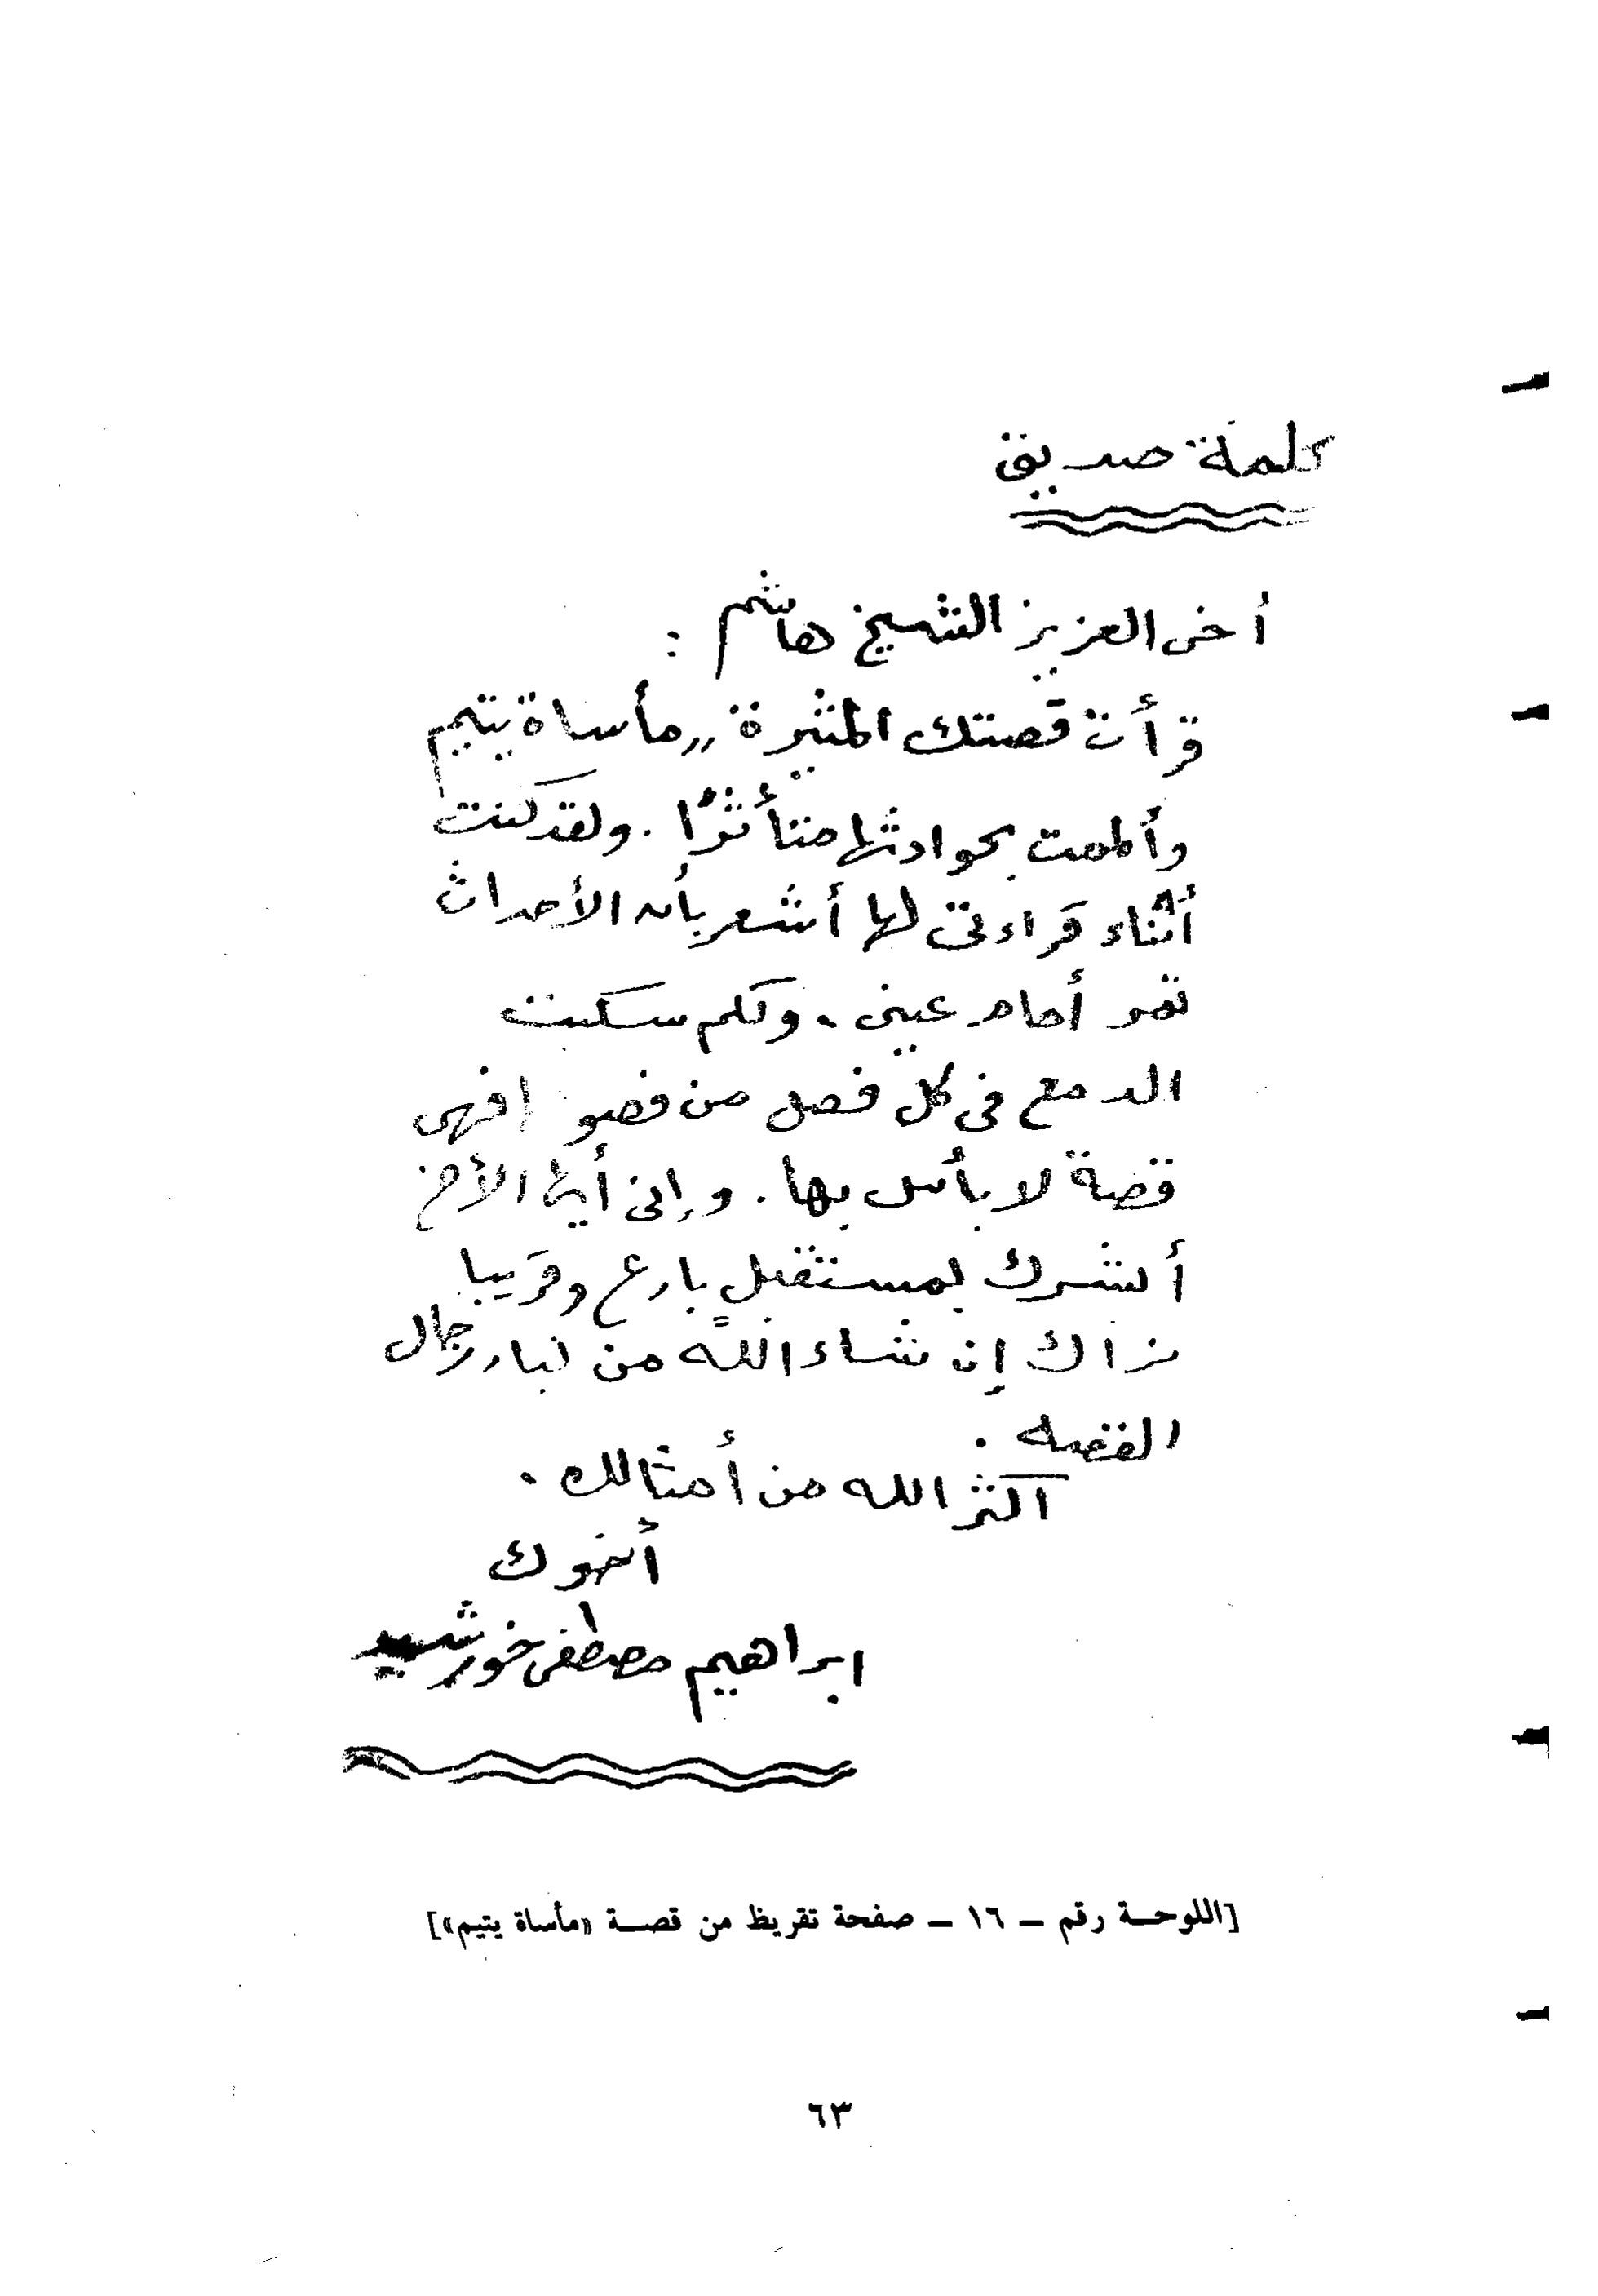 كلمة صديق
أخى العزيز الشيخ هاشم :
قرأت قصتك المثيرة „مأساة يتيم
وألممت بحوادثها متأثرًا . ولقد كنت
أثناء قراءتى لها أشعر بأن الأحداث
تمر أمام عينى . ولكم سكبت
الدمع فى كل فصل من فصو ا فهى
قصة لا بأس بها . وإنى أيها الأخ
أبشرك بمستقبلٍ بارع وقريبا
نراك إن شاء الله من كبار رجال
القصة .
أكثر الله من أمثالك .
أخوك
ابراهيم مصطفى خورشيد
[اللوحة رقم – ١٦ – صفحة تقريظ من قصة «مأساة يتيم»]
٦٣